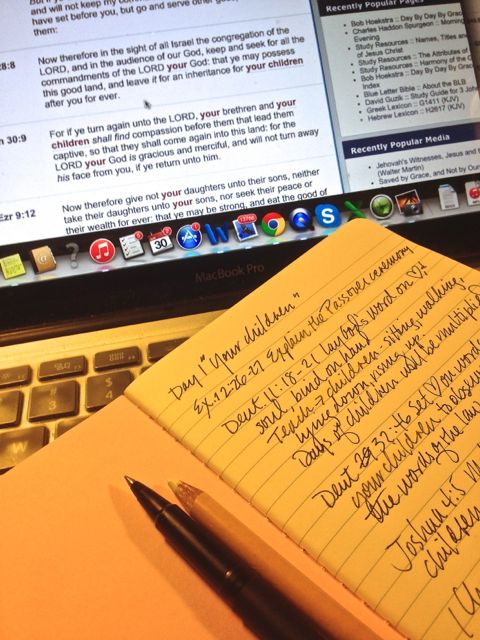 and will not keep my
have set before you, but go and serve other
them:
28:8
Now therefore in the sight of all Israel the congregation of the
LORD, and in the audience of our God, keep and seek for all the
commandments of the LORD your God: that ye may possess
this good land, and leave it for an inheritance for your children
after you for ever.
30:9
For if ye turn again unto the LORD, your brethren and your
children shall find compassion before them that lead them
captive, so that they shall come again into this land: for the
LORD your God is gracious and merciful, and will not turn away
his face from you, if ye return unto him.
Ezr 9:12
Now therefore give not your daughters unto their sons, neither
take their daughters unto your sons, nor seek their peace or
their wealth for ever: that ye may be strong, and eat the good of
Recently Popular Pages
Bob Hoekstra :: Day By Day By Grac
Evening
Charles Haddon Spurgeon :: Morning
Study Resources :: Names, Titles
of Jesus Christ
Study Resources :: The Attributes of
Study Resources :: Harmony of the
Bob Hoekstra :: Day By Day By Grac
Index
Blue Letter Bible :: About the BLB
David Guzik :: Study Guide for
Greek Lexicon :: G1411 (KJV)
Hebrew Lexicon :: H2617 (KJV)
Recently Popular Media
Jehovah's Witnesses, Jesus and
(Walter Martin)
Saved by Grace, and Not by
30
MacBook Pro
#
3
$
4
Day 1 "Your children"
Ex. 12:26-27 Explain the Passover ceremony
Deut 11:18-21 lay God's word on ♡ +
soul, bind on hand
Teach → children - sitting, walking,
lying down, rising up
Days of children will be multiplied
Deut 32: to set ♡ on word
your children to
the words of the law
Joshua 4:5
children